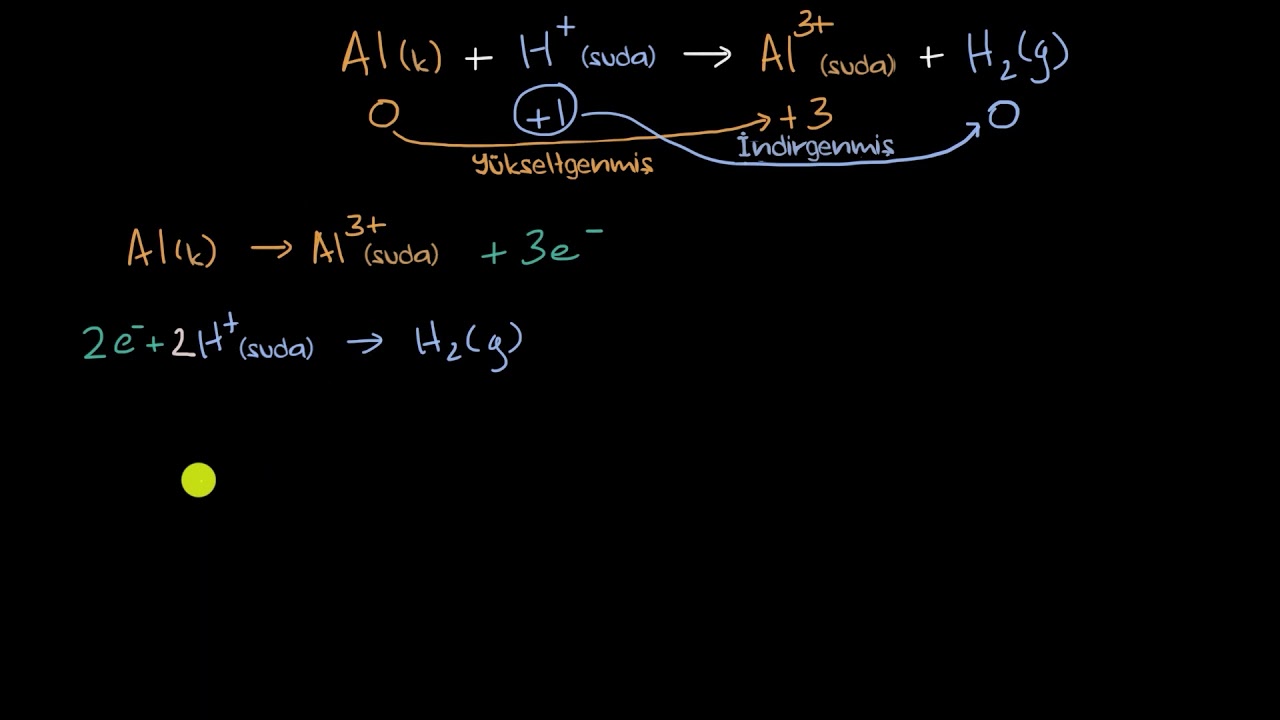 Al(k) + H⁺(suda) → Al³⁺(suda) + H₂(g)
0 +1 +3 0
Yükseltgenmiş İndirgenmiş
Al(k) → Al³⁺(suda) + 3e⁻
2e⁻ + 2H⁺(suda) → H₂(g)